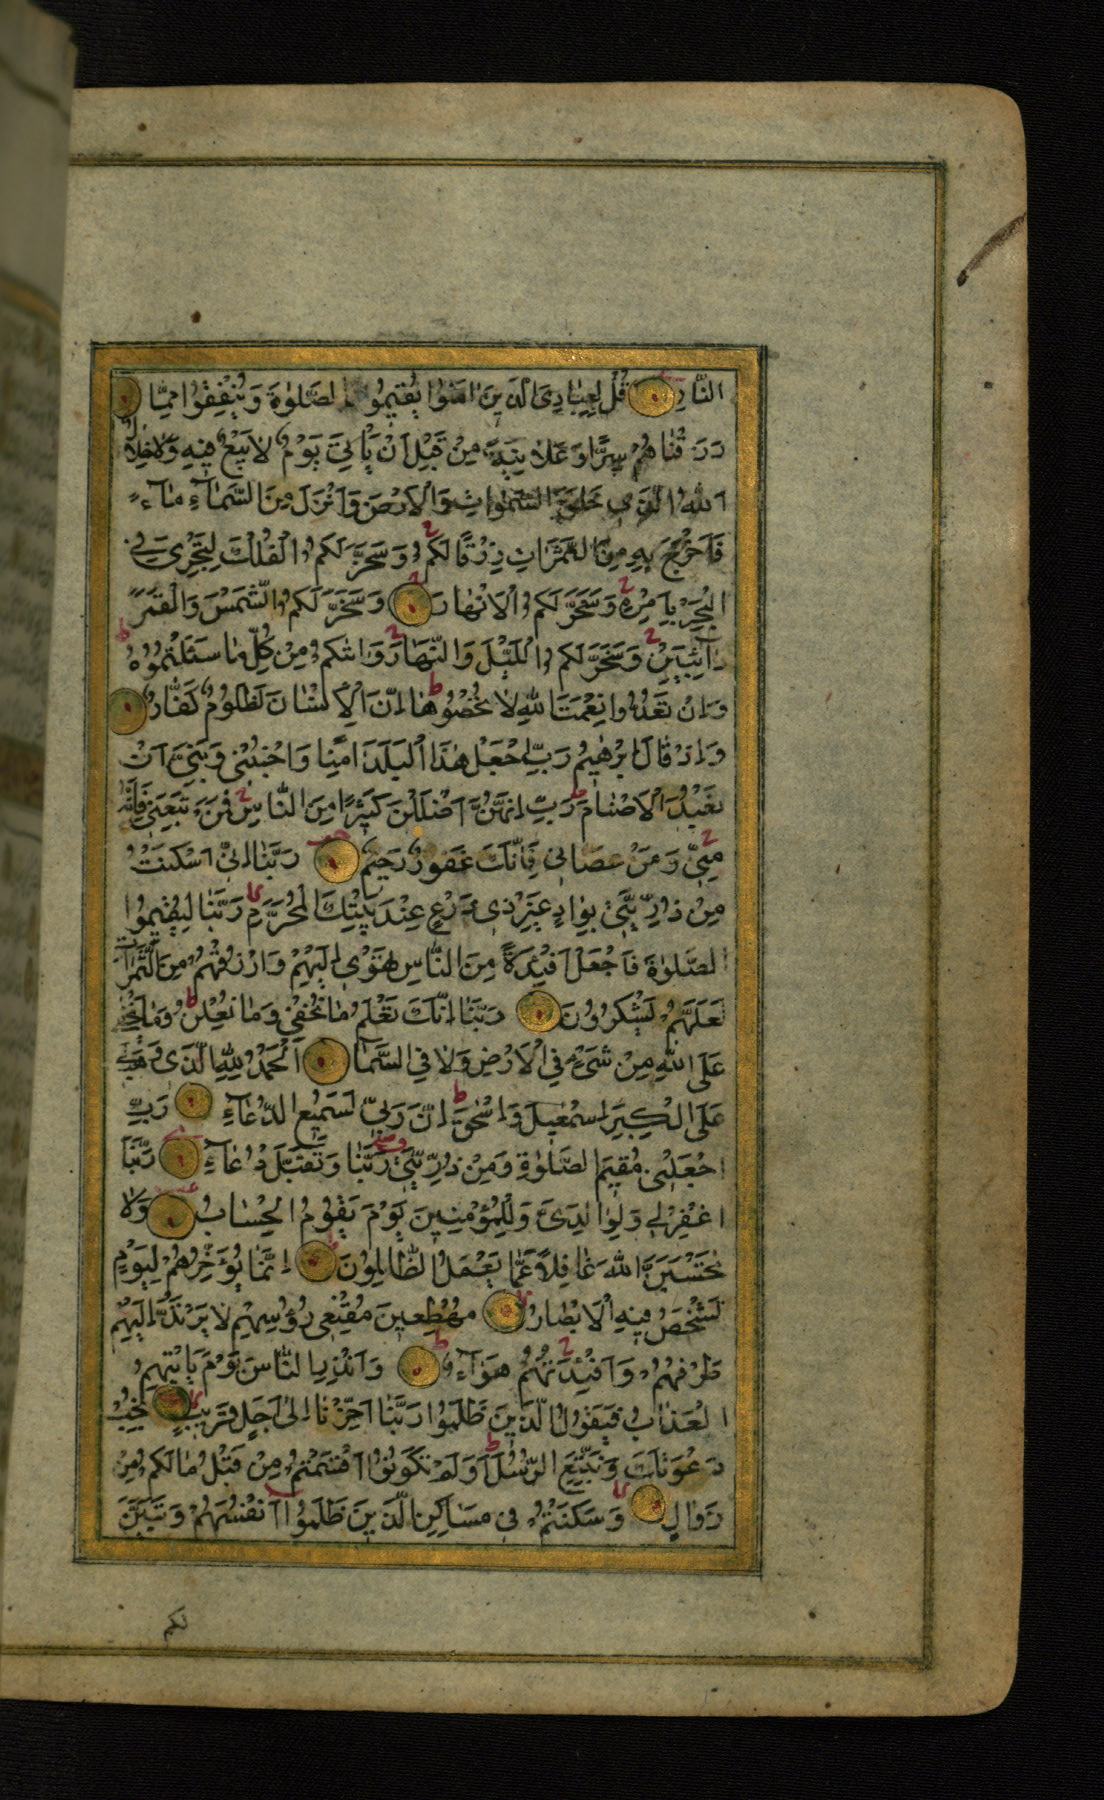 النَّارِ قُلْ لِعِبَادِىَ الَّذِينَ اٰمَنُوا يُقِيمُوا الصَّلٰوةَ وَيُنْفِقُوا مِمَّا
رَزَقْنَاهُمْ سِرًّا وَعَلَانِيَةً مِنْ قَبْلِ اَنْ يَاْتِىَ يَوْمٌ لَا بَيْعٌ فِيهِ وَلَا خِلَالٌ
اَللّٰهُ الَّذِى خَلَقَ السَّمٰوَاتِ وَالْاَرْضَ وَاَنْزَلَ مِنَ السَّمَآءِ مَآءً
فَاَخْرَجَ بِهِ مِنَ الثَّمَرَاتِ رِزْقًا لَكُمْ وَسَخَّرَ لَكُمُ الْفُلْكَ لِتَجْرِىَ فِى
الْبَحْرِ بِاَمْرِهِ وَسَخَّرَ لَكُمُ الْاَنْهَارَ وَسَخَّرَ لَكُمُ الشَّمْسَ وَالْقَمَرَ
دَآئِبَيْنِ وَسَخَّرَ لَكُمُ الَّيْلَ وَالنَّهَارَ وَاٰتٰىكُمْ مِنْ كُلِّ مَا سَئَلْتُمُوهُ
وَاِنْ تَعُدُّوا نِعْمَتَ اللّٰهِ لَا تُحْصُوهَا اِنَّ الْاِنْسَانَ لَظَلُومٌ كَفَّارٌ
وَاِذْ قَالَ اِبْرٰهِيمُ رَبِّ اجْعَلْ هٰذَا الْبَلَدَ اٰمِنًا وَاجْنُبْنِى وَبَنِىَّ اَنْ
نَعْبُدَ الْاَصْنَامَ رَبِّ اِنَّهُنَّ اَضْلَلْنَ كَثِيرًا مِنَ النَّاسِ فَمَنْ تَبِعَنِى فَاِنَّهُ
مِنِّى وَمَنْ عَصَانِى فَاِنَّكَ غَفُورٌ رَحِيمٌ رَبَّنَا اِنِّى اَسْكَنْتُ
مِنْ ذُرِّيَّتِى بِوَادٍ غَيْرِ ذِى زَرْعٍ عِنْدَ بَيْتِكَ الْمُحَرَّمِ رَبَّنَا لِيُقِيمُوا
الصَّلٰوةَ فَاجْعَلْ اَفْئِدَةً مِنَ النَّاسِ تَهْوِى اِلَيْهِمْ وَارْزُقْهُمْ مِنَ الثَّمَرَاتِ
لَعَلَّهُمْ يَشْكُرُونَ رَبَّنَا اِنَّكَ تَعْلَمُ مَا نُخْفِى وَمَا نُعْلِنُ وَمَا يَخْفٰى
عَلَى اللّٰهِ مِنْ شَىْءٍ فِى الْاَرْضِ وَلَا فِى السَّمَآ اَلْحَمْدُ لِلّٰهِ الَّذِى وَهَبَ لِى
عَلَى الْكِبَرِ اِسْمٰعِيلَ وَاِسْحٰقَ اِنَّ رَبِّى لَسَمِيعُ الدُّعَآءِ رَبِّ
اجْعَلْنِى مُقِيمَ الصَّلٰوةِ وَمِنْ ذُرِّيَّتِى رَبَّنَا وَتَقَبَّلْ دُعَآءِ رَبَّنَا
اغْفِرْ لِى وَلِوَالِدَىَّ وَلِلْمُؤْمِنِينَ يَوْمَ يَقُومُ الْحِسَابُ وَلَا
تَحْسَبَنَّ اللّٰهَ غَافِلًا عَمَّا يَعْمَلُ الظَّالِمُونَ اِنَّمَا يُؤَخِّرُهُمْ لِيَوْمٍ
تَشْخَصُ فِيهِ الْاَبْصَارُ مُهْطِعِينَ مُقْنِعِى رُؤُسِهِمْ لَا يَرْتَدُّ اِلَيْهِمْ
طَرْفُهُمْ وَاَفْئِدَتُهُمْ هَوَآءٌ وَاَنْذِرِ النَّاسَ يَوْمَ يَاْتِيهِمُ
الْعَذَابُ فَيَقُولُ الَّذِينَ ظَلَمُوا رَبَّنَا اَخِّرْنَا اِلٰى اَجَلٍ قَرِيبٍ نُجِبْ
دَعْوَتَكَ وَنَتَّبِعِ الرُّسُلَ اَوَلَمْ تَكُونُوا اَقْسَمْتُمْ مِنْ قَبْلُ مَا لَكُمْ مِنْ
زَوَالٍ وَسَكَنْتُمْ فِى مَسَاكِنِ الَّذِينَ ظَلَمُوا اَنْفُسَهُمْ وَتَبَيَّنَ
لكم